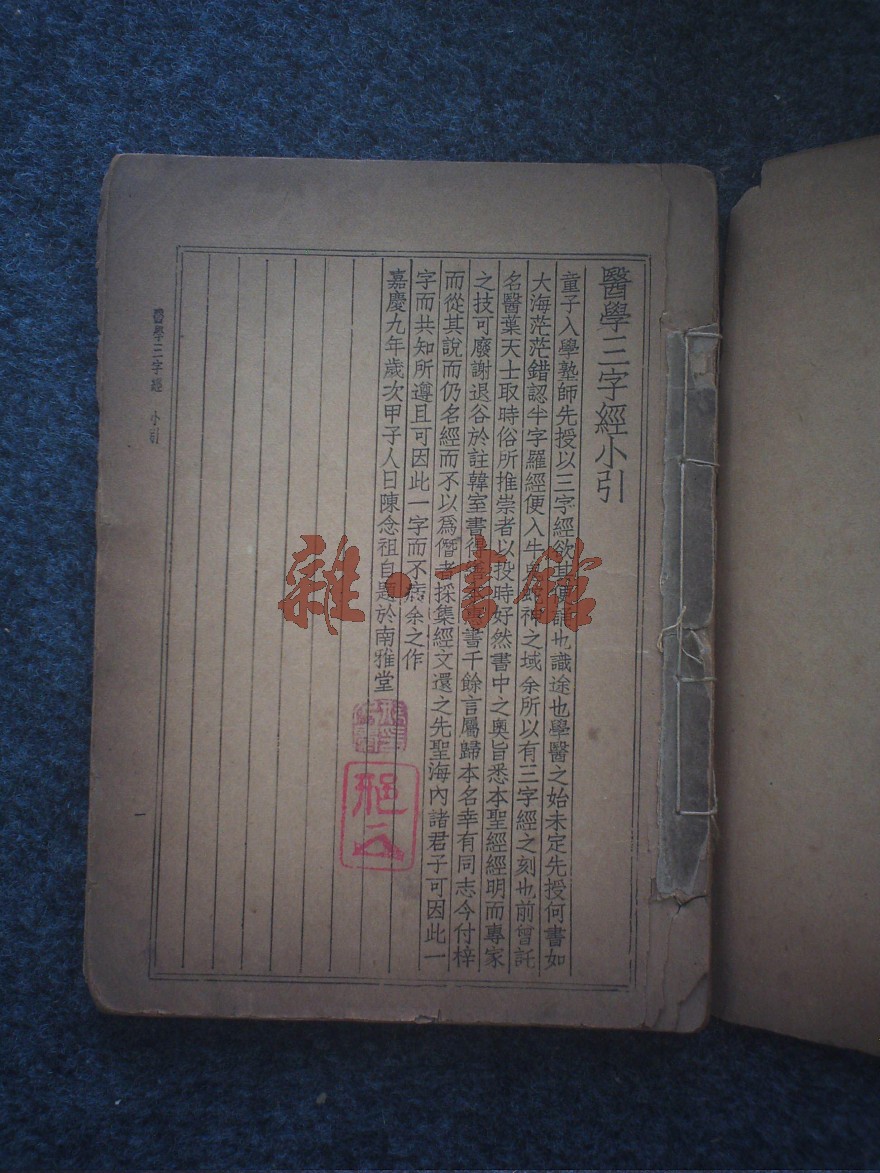 醫學三字經小引
童子入學塾師先授以三字經欲其便誦也識途也學醫之始未定先授何書如
大海茫茫錯認半字羅經便入牛神之域余所以有三字經之刻也前曾託
名醫葉天士取時俗所推崇者以投時好然書中之奧旨悉本聖經經明而專家
之技可廢謝退谷於註韓室書得書千餘言屬歸本名幸有同志今付梓
而從其說而仍名經而不以為僭者採集經文還之先聖海內諸君子可因此一
字而共知所遵且可因此一字而不病余之作
嘉慶九年歲次甲子人日陳念祖自題於南雅堂
醫學三字經 小引
一
雜·書館